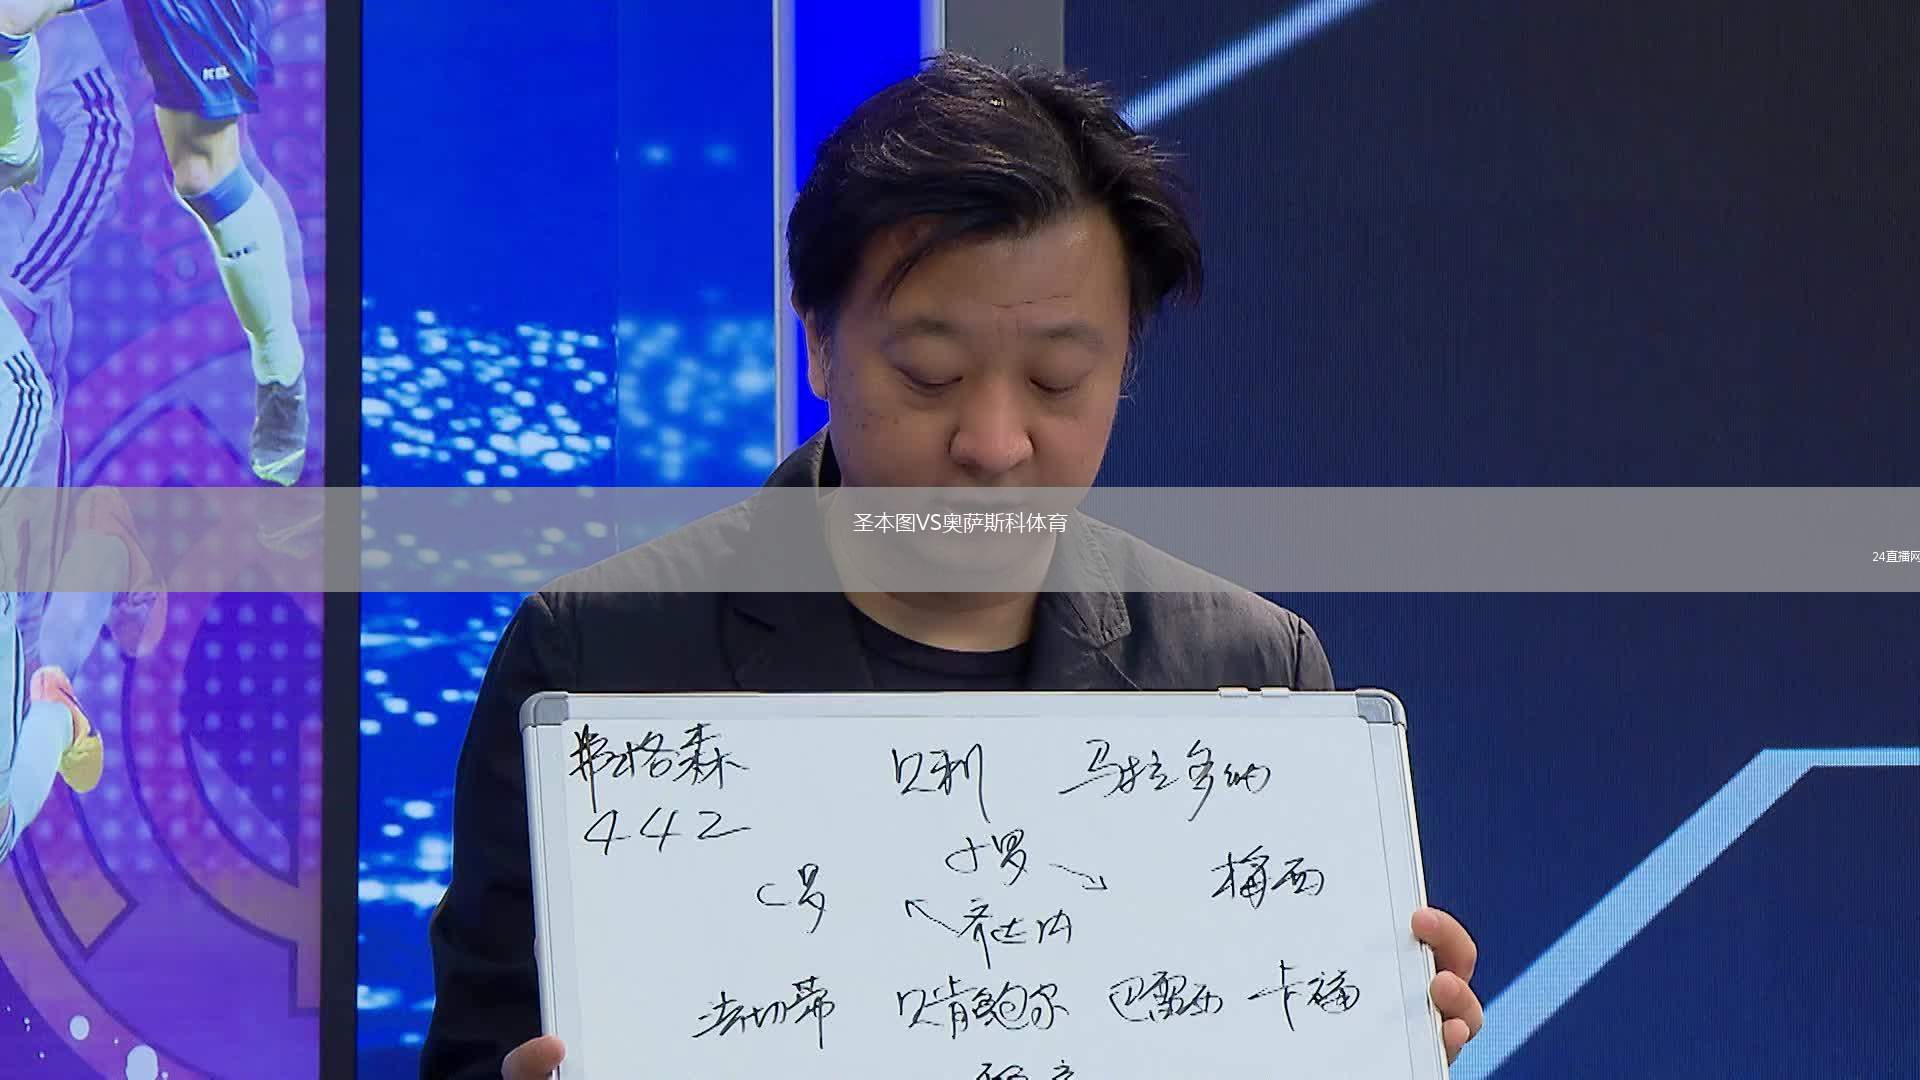 KEL
圣本图VS奥萨斯科体育
24直播网
弗格森 贝利 马拉多纳
442
小罗
C罗 梅西
齐达内
法切蒂 贝肯鲍尔 巴雷西 卡福